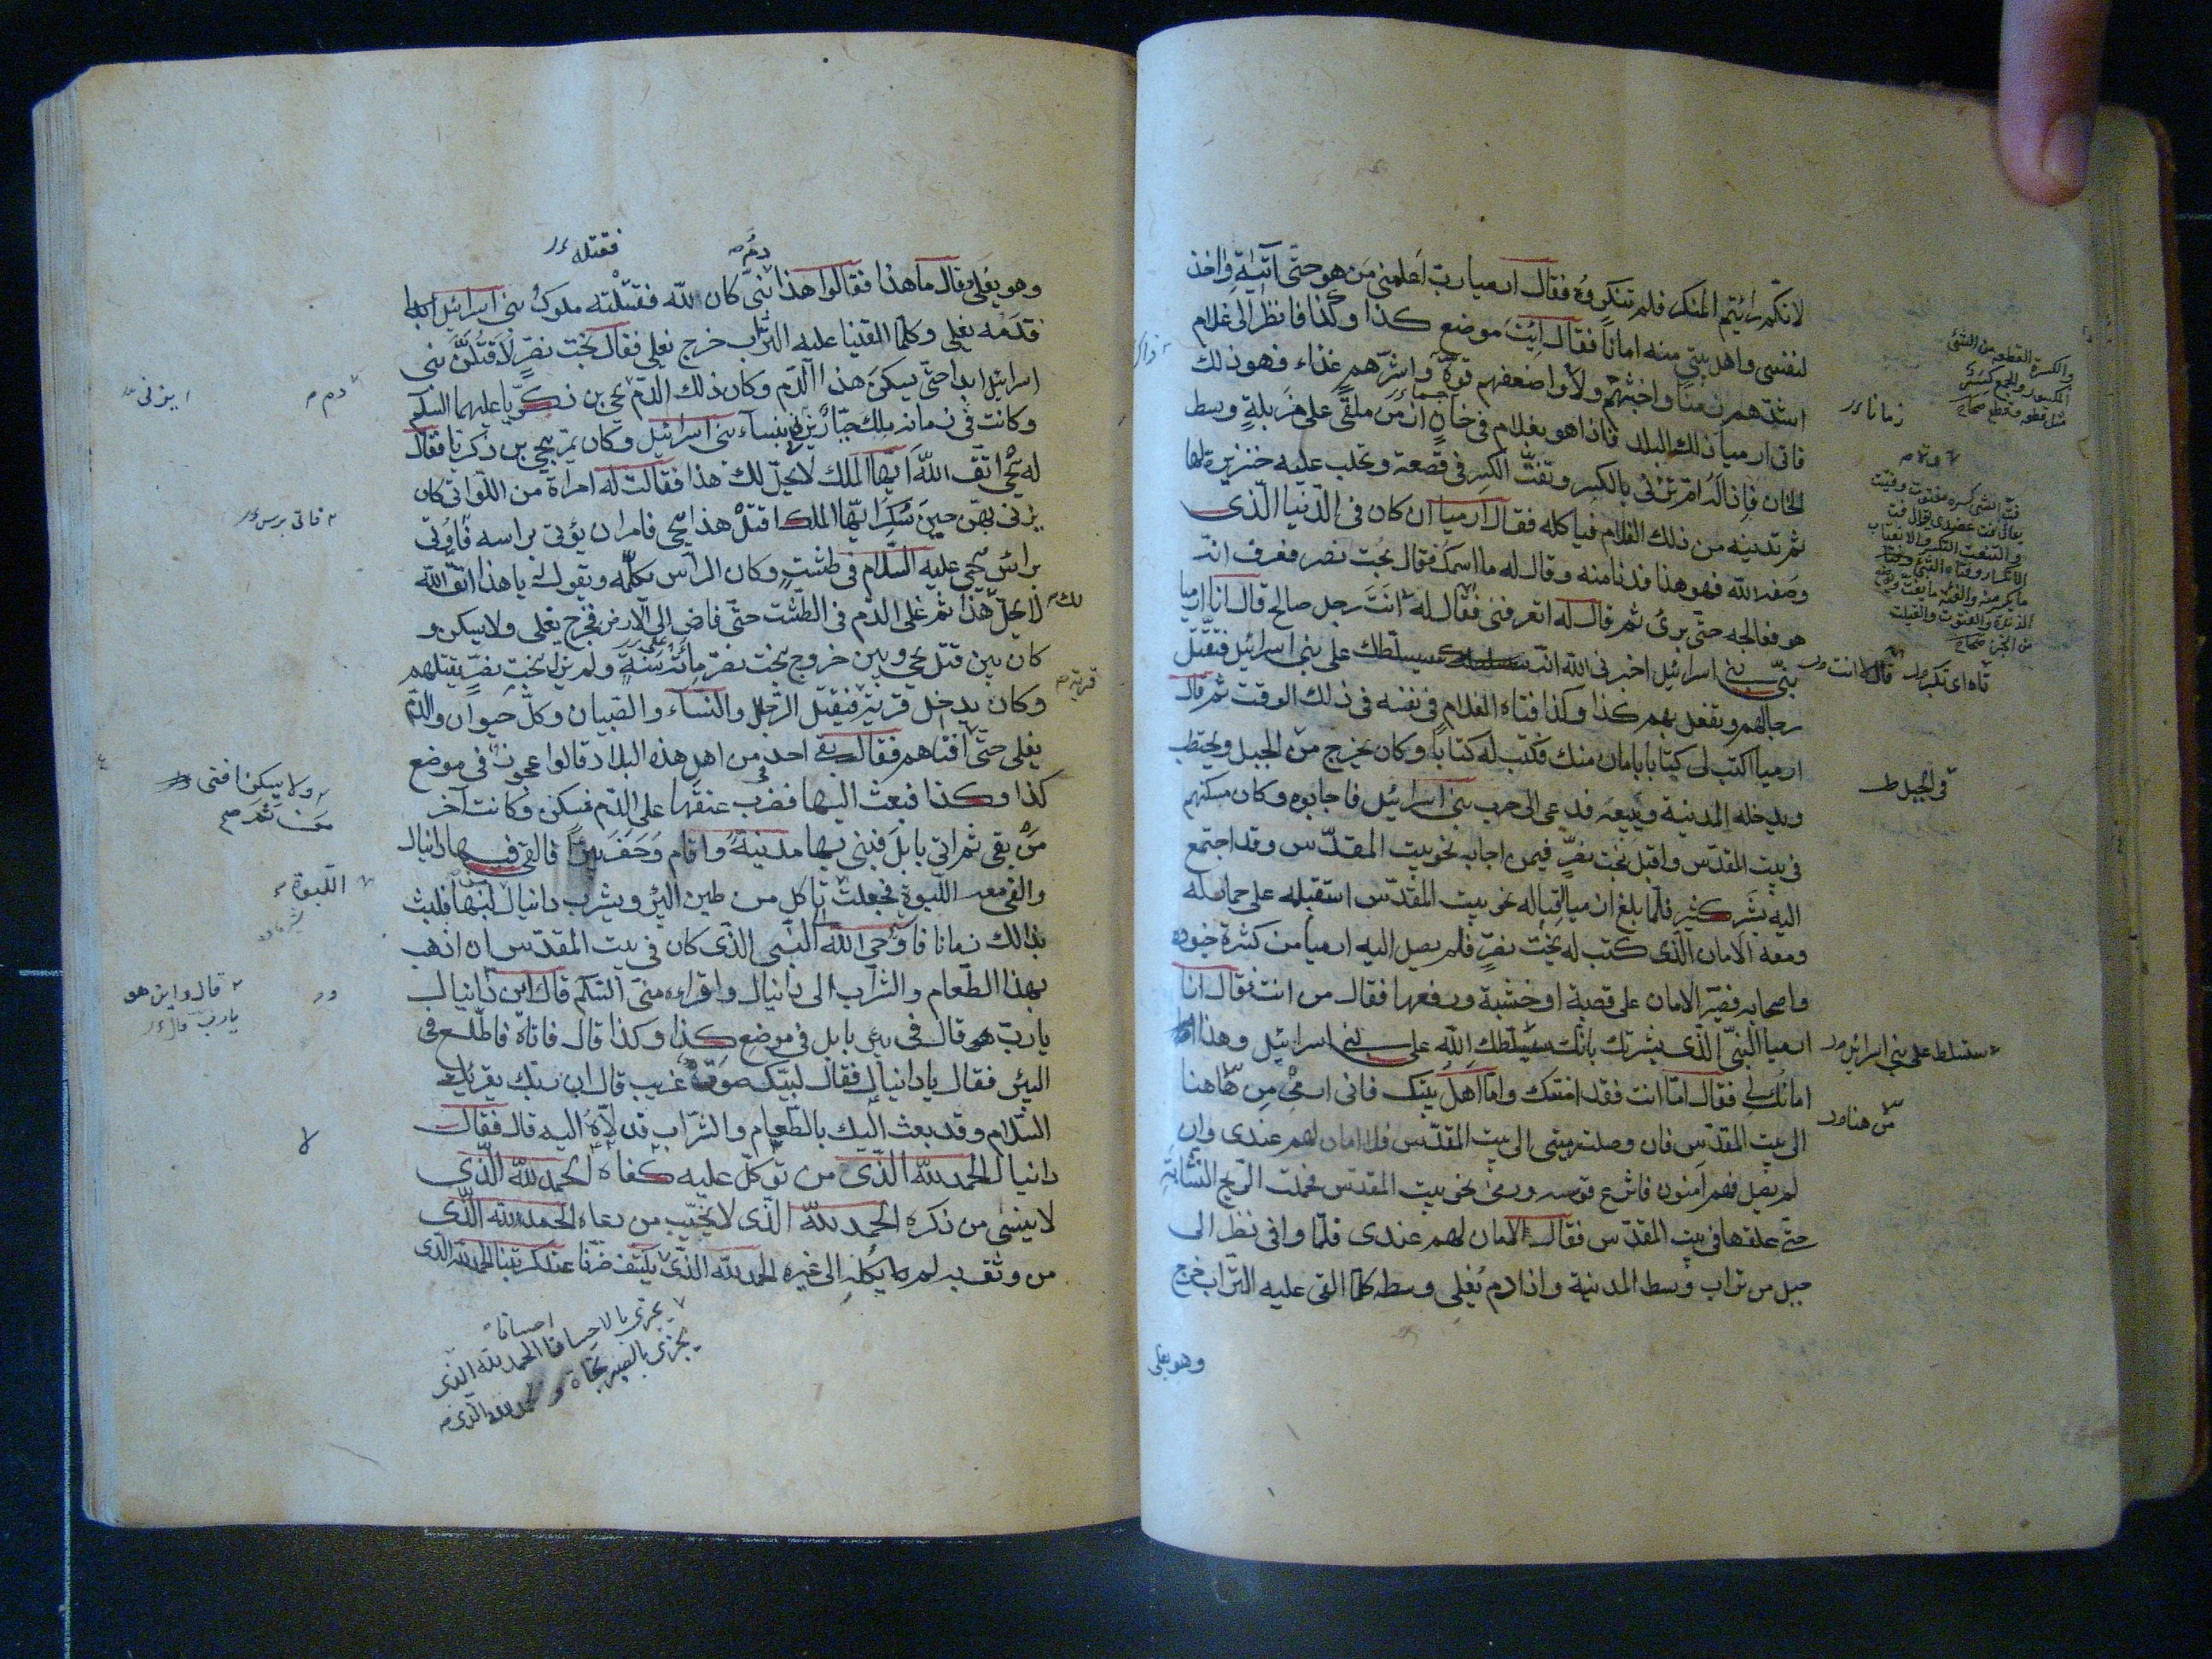 لانكم رايتم المنكر فلم تنكروه فقال ارميا رب اعلمني من هو حتى آتيه واخذ
لنفسي واهل بيتي منه امانا فقال ايت موضع كذا وكذا فانظر الى غلام
اشدهم زمنا واخبثهم ولادا واضعفهم قوة واشرهم غذاء فهو ذلك
فاتى ارميا ذلك البلد فاذا هو بغلام في خان زمن ملقى على مزبلة وسط
الخان فاذا له ام تزني بالكسر وتفت الكسر في قصعة وتحلب عليه خنزيرة لها
ثم تدنيه من ذلك الغلام فياكله فقال ارميا ان كان في الدنيا الذي
وصفه الله فهو هذا فدنا منه وقال له ما اسمك فقال بخت نصر فعرف انه
هو فعالجه حتى برئ ثم قال له اتعرفني فقال له انت رجل صالح قال انا ارميا
نبي بني اسرائيل اخبرني الله انه سيسلطك على بني اسرائيل فتقتل
رجالهم وتفعل بهم كذا وكذا فتاه الغلام في نفسه في ذلك الوقت ثم قال
ارميا اكتب لي كتابا بامان منك فكتب له كتابا وكان يخرج من الجبل ويحتطب
ويدخله المدينة ويبيعه فدعى الى حرب بني اسرائيل فاجابوه وكان مسكنهم
في بيت المقدس واقبل بخت نصر فيمن اجابه نحو بيت المقدس وقد اجتمع
اليه بشر كثير فلما بلغ ارميا اقباله نحو بيت المقدس استقبله على حمار له
ومعه الامان الذي كتب له بخت نصر فلم يصل اليه ارميا من كثرة جنوده
واصحابه فصير الامان على قصبة او خشبة ورفعها فقال من انت فقال انا
ارميا النبي الذي بشرتك بانك سيسلطك الله على بني اسرائيل وهذا
امانك لي فقال اما انت فقد امنتك واما اهل بيتك فاني ارمي من هاهنا
الى بيت المقدس فان وصلت رميتي الى بيت المقدس فلا امان لهم عندي وان
لم تصل فهم آمنون فانتزع قوسه ورمى نحو بيت المقدس فحملت الريح النشابة
حتى علقها في بيت المقدس فقال لا امان لهم عندي فلما وافى نظر الى
جبل من تراب وسط المدينة واذا دم يغلي وسطه كلما القي عليه التراب خرج
وهو يغلي
والكسرة القطعة من الشئ
المكسور والجمع كسر
مثل قطعة وقطع صحاح
زمانا
تاه اي تكبر
قال له انت
في الجبل
ستسلط على بني اسرائيل
من هنا
وهو يغلي وقال ما هذا فقالوا هذا نبي كان لله فقتلته ملوك بني اسرائيل
فدمه يغلي وكلما القينا عليه التراب خرج يغلي فقال بخت نصر لاقتلن بني
اسرائيل ابدا حتى يسكن هذا الدم وكان ذلك الدم يحيى بن زكريا عليهما السلم
وكانت في زمانه ملك جبار يزني بنساء بني اسرائيل وكان يمر بيحيى بن زكريا فقال
له يحيى اتق الله ايها الملك لا يحل لك هذا فقالت له امراة من اللواتي كان
يزني بهن حين سكر ايها الملك اقتل هذا يحيى فامر ان يؤتى براسه فاوتي
براس يحيى عليه السلام في طشت وكان الراس يكلمه ويقول له يا هذا اتق الله
لا يحل هذا ثم غلى الدم في الطشت حتى فاض الى الارض فخرج يغلي ولا يسكن و
كان بين قتل يحيى وبين خروج بخت نصر مائة سنة ولم يزل بخت نصر يقتلهم
وكان يدخل قرية فيقتل الرجال والنساء والصبيان وكل حيوان والدم
يغلي حتى افناهم فقال بقي احد من اهل هذه البلاد قالوا عجوز في موضع
كذا وكذا فبعث اليها فضرب عنقها على الدم فسكن وكانت آخر
من بقي ثم اتى بابل فبنى بها مدينة واقام وحفر بئرا فالقى فيها دانيال
والقى معه اللبوة فجعلت تاكل من طين البئر ويشرب دانيال لبنها فلبث
بذلك زمانا فاوحى الله النبي الذي كان في بيت المقدس ان اذهب
بهذا الطعام والشراب الى دانيال واقراءه مني السلم قال اين دانيال
يا رب هو قال في بئر بابل في موضع كذا وكذا قال فاتاه فاطلع في
البئر فقال يا دانيال فقال لبيك صوت غريب قال ان ربك يقرئك
السلام وقد بعث اليك بالطعام والشراب فدلاه اليه قال فقال
دانيال الحمد لله الذي من توكل عليه كفاه الحمد لله الذي
لا ينسى من ذكره الحمد لله الذي لا يخيب من دعاه الحمد لله الذي
من وثق به لم يكله الى غيره الحمد لله الذي يكشف ضرنا عند كربتنا الحمد لله الذي
يجزي بالاحسان احسانا الحمد لله الذي
يجزي بالصبر نجاة والحمد لله الذي
فقتله
دم
فاتي براس
لك
قرية
ولا يسكن افنى
من ثم صح
اللبوة
قال واين هو
يا رب قال